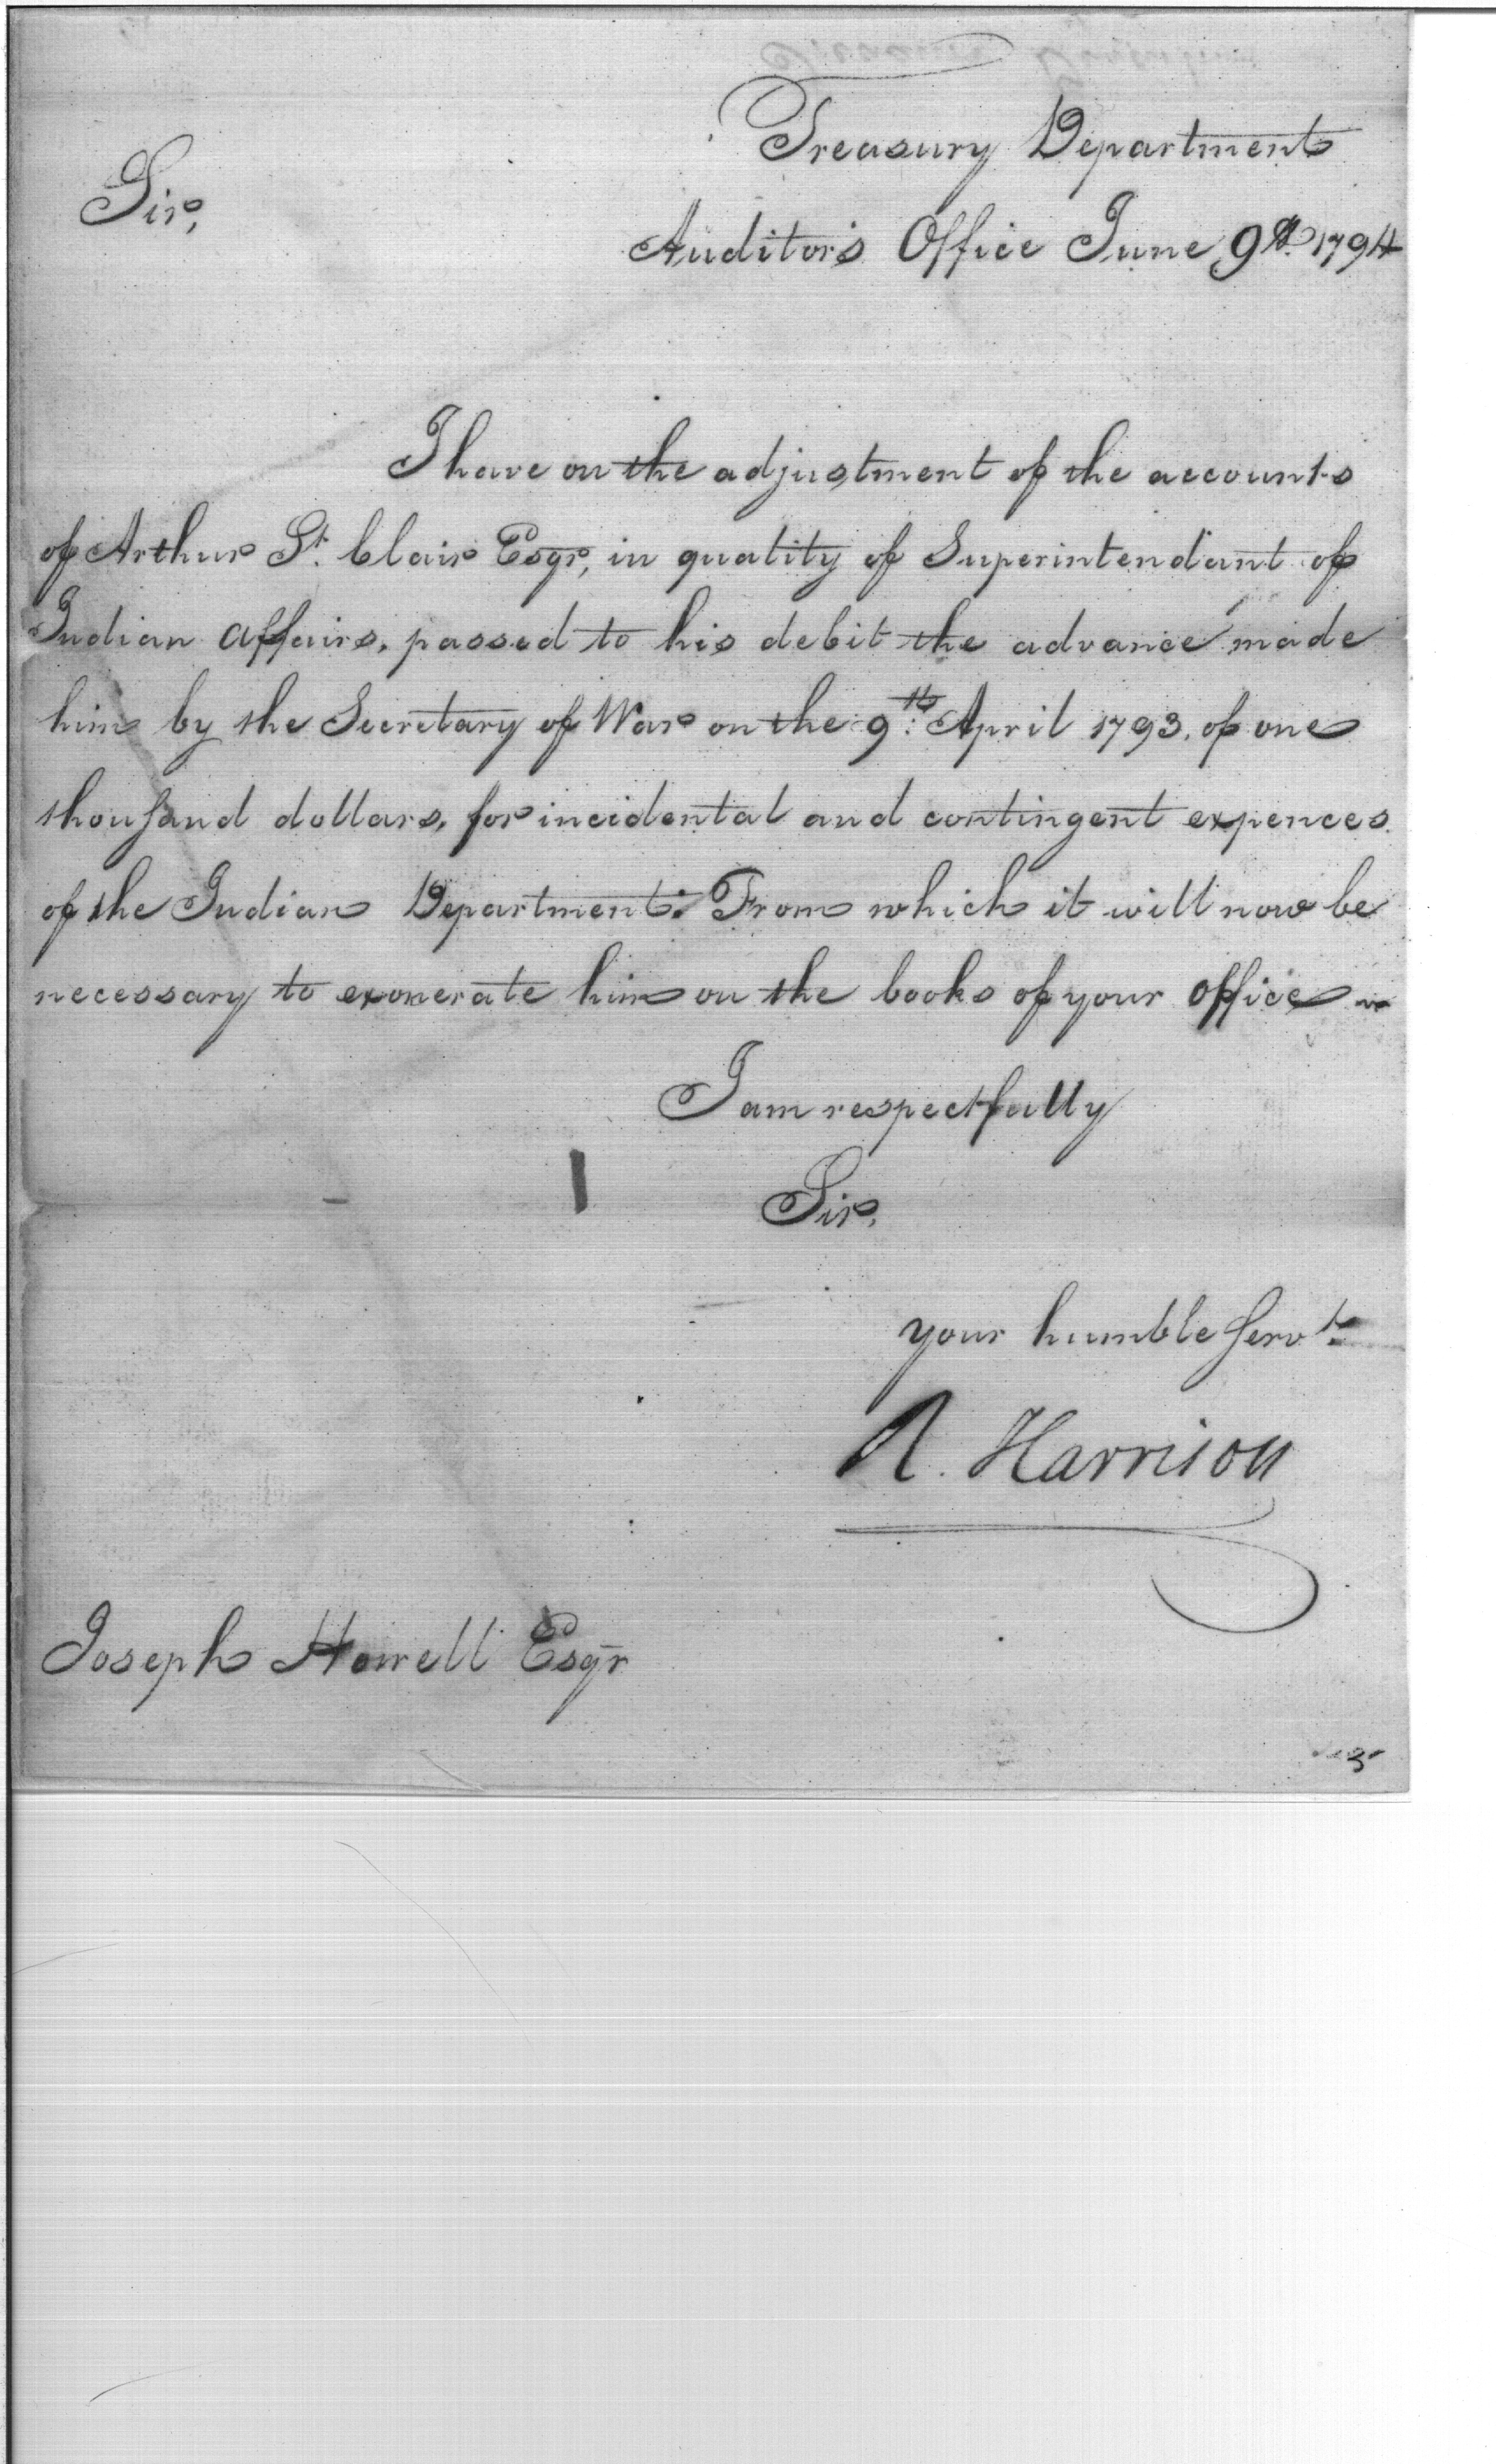 Treasury Department
Sir,
Auditor's Office June 9th. 1794
I have on the adjustment of the accounts
of Arthur St. Clair Esqr, in quality of Superintendant of
Indian affairs, passed to his debit the advance made
him by the Secretary of War on the 9th: April 1793, of one
thousand dollars, for incidental and contingent expences
of the Indian Department: From which it will now be
necessary to exonerate him on the books of your office
I am respectfully
Sir,
your humble servt.
R. Harrison
Joseph Howell Esqr